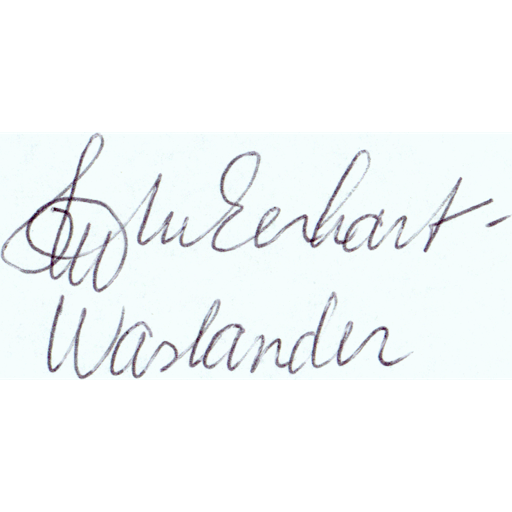 Eerhart-
Waslander